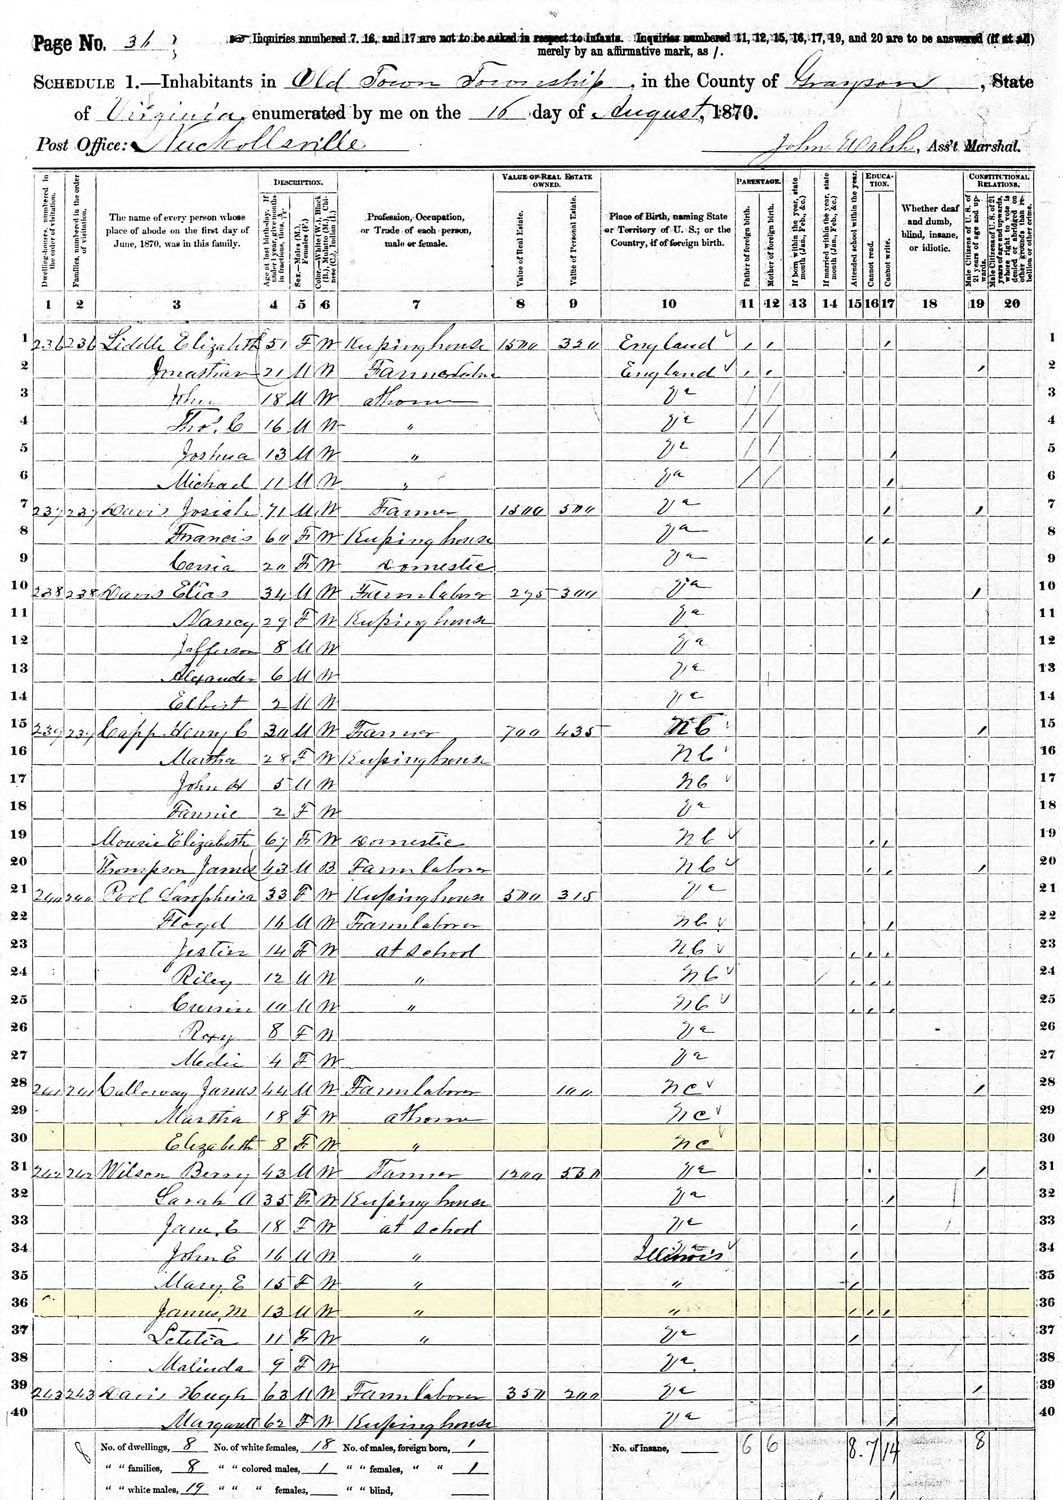 Page No. 36
☞ Inquiries numbered 7, 16, and 17 are not to be asked in respect to infants. Inquiries numbered 11, 12, 15, 16, 17, 19, and 20 are to be answered (if at all)
merely by an affirmative mark, as /.
SCHEDULE 1.—Inhabitants in Old Town Township, in the County of Grayson, State
of Virginia, enumerated by me on the 16 day of August, 1870.
Post Office: Nuckollsville John Walsh, Ass't Marshal.
DESCRIPTION. VALUE OF REAL ESTATE OWNED. PARENTAGE. EDUCATION. CONSTITUTIONAL RELATIONS.
Dwelling-houses, numbered in the order of visitation.
Families, numbered in the order of visitation.
The name of every person whose place of abode on the first day of June, 1870, was in this family.
Age at last birth-day. If under 1 year, give months in fractions, thus,
Sex.—Males (M.), Females (F.)
Color.—White (W.), Black (B.), Mulatto (M.), Chinese (C.), Indian (I.)
Profession, Occupation, or Trade of each person, male or female.
Value of Real Estate.
Value of Personal Estate.
Place of Birth, naming State or Territory of U. S.; or the Country, if of foreign birth.
Father of foreign birth.
Mother of foreign birth.
If born within the year, state month (Jan., Feb., &c.)
If married within the year, state month (Jan., Feb., &c.)
Attended school within the year.
Cannot read.
Cannot write.
Whether deaf and dumb, blind, insane, or idiotic.
Male Citizens of U. S. of 21 years of age and upwards.
Male Citizens of U. S. of 21 years of age and upwards, whose right to vote is denied or abridged on other grounds than rebellion or other crime.
1 2 3 4 5 6 7 8 9 10 11 12 13 14 15 16 17 18 19 20
1 236 236 Liddle Elizabeth 51 F W Keeping house 1500 320 England / / / 1
2 Jonathan 21 M W Farm labor England / / / 2
3 John 18 M W at home Va / / 3
4 Thos. C 16 M W " Va / / 4
5 Joshua 13 M W " Va / / / 5
6 Michael 11 M W " Va / / / 6
7 237 237 Davis Josiah 71 M W Farmer 1500 500 Va / / 7
8 Francis 60 F W Keeping house Va / / 8
9 20 F W Domestic Va 9
10 238 238 Davis Elias 34 M W Farm laborer 275 300 Va / 10
11 Nancy 29 F W Keeping house Va 11
12 Jefferson 8 M W Va 12
13 Alexander 6 M W Va 13
14 Elbert 2 M W Va 14
15 239 239 Capp Henry C 30 M W Farmer 700 435 NC / 15
16 Martha 28 F W Keeping house NC 16
17 John H 5 M W NC 17
18 Fannie 2 F W Va 18
19 Elizabeth 67 F W Domestic NC / / 19
20 Thompson James 43 M B Farm laborer NC / / / 20
21 240 240 Pool 33 F W Keeping house 500 315 Va 21
22 Floyd 16 M W Farm laborer NC / 22
23 14 F W at school NC / / / 23
24 Riley 12 M W " NC / / / 24
25 10 M W " NC / / / 25
26 Roxy 8 F W Va 26
27 Medie 4 F W Va 27
28 241 241 Calloway James 44 M W Farm laborer 100 NC / 28
29 Martha 18 F W at home NC 29
30 Elizabeth 8 F W " NC 30
31 242 242 Wilson Berry 43 M W Farmer 1200 530 Va / / 31
32 Sarah A 35 F W Keeping house Va / 32
33 Jane, E 18 F W at school Va / 33
34 John E 16 M W " Illinois / 34
35 Mary, E 15 F W " " / 35
36 James, M 13 M W " " / / / 36
37 Letitia 11 F W " Va / 37
38 Malinda 9 F W Va. 38
39 243 243 Davis Hugh 63 M W Farm laborer 350 200 Va / 39
40 Margarett 62 F W Keeping house Va / 40
8 No. of dwellings, 8 No. of white females, 18 No. of males, foreign born, 1 No. of insane, 6 6 8. 7 14 8
" " families, 8 " " colored males, 1 " " females, " " 1
" " white males, 19 " " " females, " " blind,